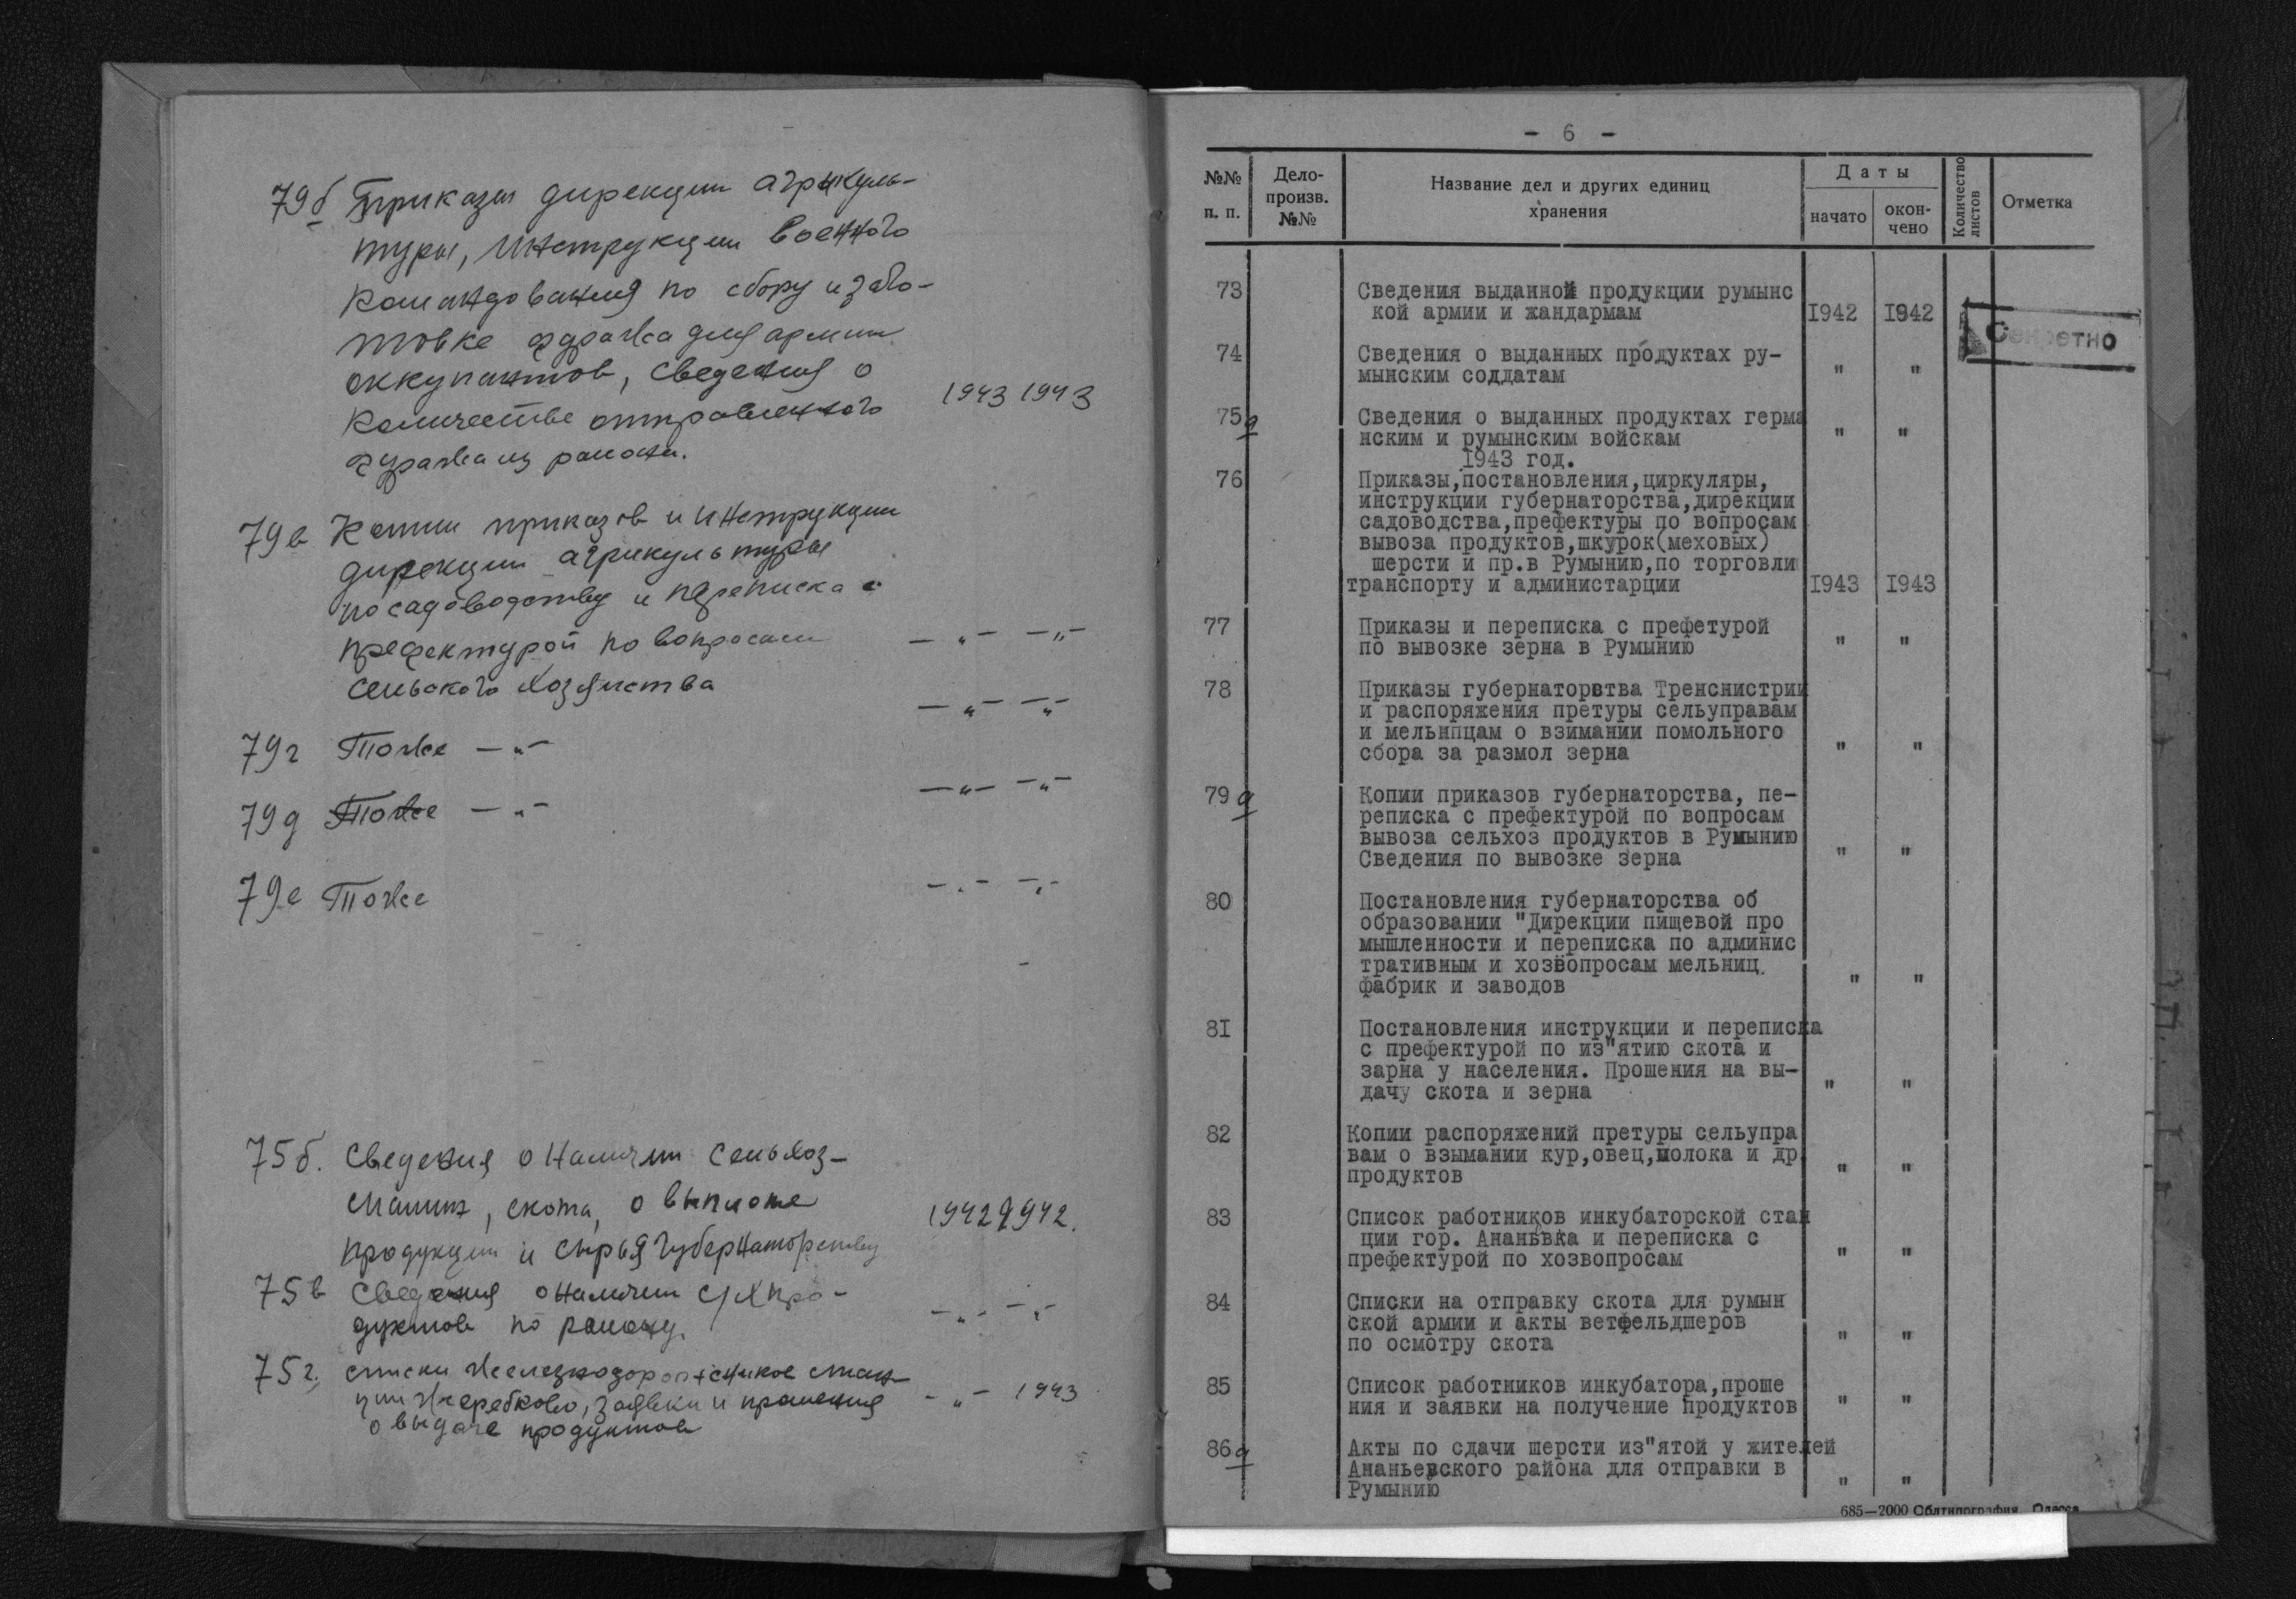 79б Приказы дирекции агрикуль-
туры, инструкции военного
командования по сбору и заго-
товке фуража для армии
оккупантов, сведения о
количестве отправленного 1943 1943
фуража из района.
79в Копии приказов и инструкции
дирекции агрикультуры
по садоводству и переписка с
префектурой по вопросам — „ — — „ —
сельского хозяйства
— „ — — „ —
79г Тоже — „ —
— „ — — „ —
79д Тоже — „ —
— „ — — „ —
79е Тоже
75б. Сведения о наличии сельхоз-
машин, скота, о выплате 1942 1942.
продукции и сырья губернаторству
75в Сведения о наличии с/х про- — „ — — „ —
дуктов по району.
75г. списки железнодорожников стан-
ции Жеребково, заявки и прошения — „ — 1943
о выдаче продуктов
- 6 -
№№ п. п.
Дело-произв. №№
Название дел и других единиц хранения
Даты
начато
окон-чено
Количество листов
Отметка
73 Сведения выданной продукции румынс
кой армии и жандармам I942 I942
Секретно
74 Сведения о выданных продуктах ру-
мынским соддатам " "
75а Сведения о выданных продуктах герма
нским и румынским войскам " "
I943 год.
76 Приказы,постановления,циркуляры,
инструкции губернаторства,дирекции
садоводства,префектуры по вопросам
вывоза продуктов,шкурок(меховых)
шерсти и пр.в Румынию,по торговли
транспорту и администарции I943 I943
77 Приказы и переписка с префетурой
по вывозке зерна в Румынию " "
78 Приказы губернаторвтва Тренснистрии
и распоряжения претуры сельуправам
и мельнпцам о взимании помольного
сбора за размол зерна " "
79а Копии приказов губернаторства, пе-
реписка с префектурой по вопросам
вывоза сельхоз продуктов в Румынию
Сведения по вывозке зерна " "
80 Постановления губернаторства об
образовании "Дирекции пищевой про
мышленности и переписка по админис
тративным и хозвопросам мельниц.
фабрик и заводов " "
8I Постановления инструкции и переписка
с префектурой по из"ятию скота и
зарна у населения. Прошения на вы-
дачу скота и зерна " "
82 Копии распоряжений претуры сельупра
вам о взымании кур,овец,молока и др
продуктов " "
83 Список работников инкубаторской стан
ции гор. Ананьвка и переписка с
префектурой по хозвопросам " "
84 Списки на отправку скота для румын
ской армии и акты ветфельдшеров
по осмотру скота " "
85 Список работников инкубатора,проше
ния и заявки на получение продуктов " "
86а Акты по сдачи шерсти из"ятой у жителей
Ананьевского района для отправки в
Румынию " "
685—2000 Облтипография Одесса